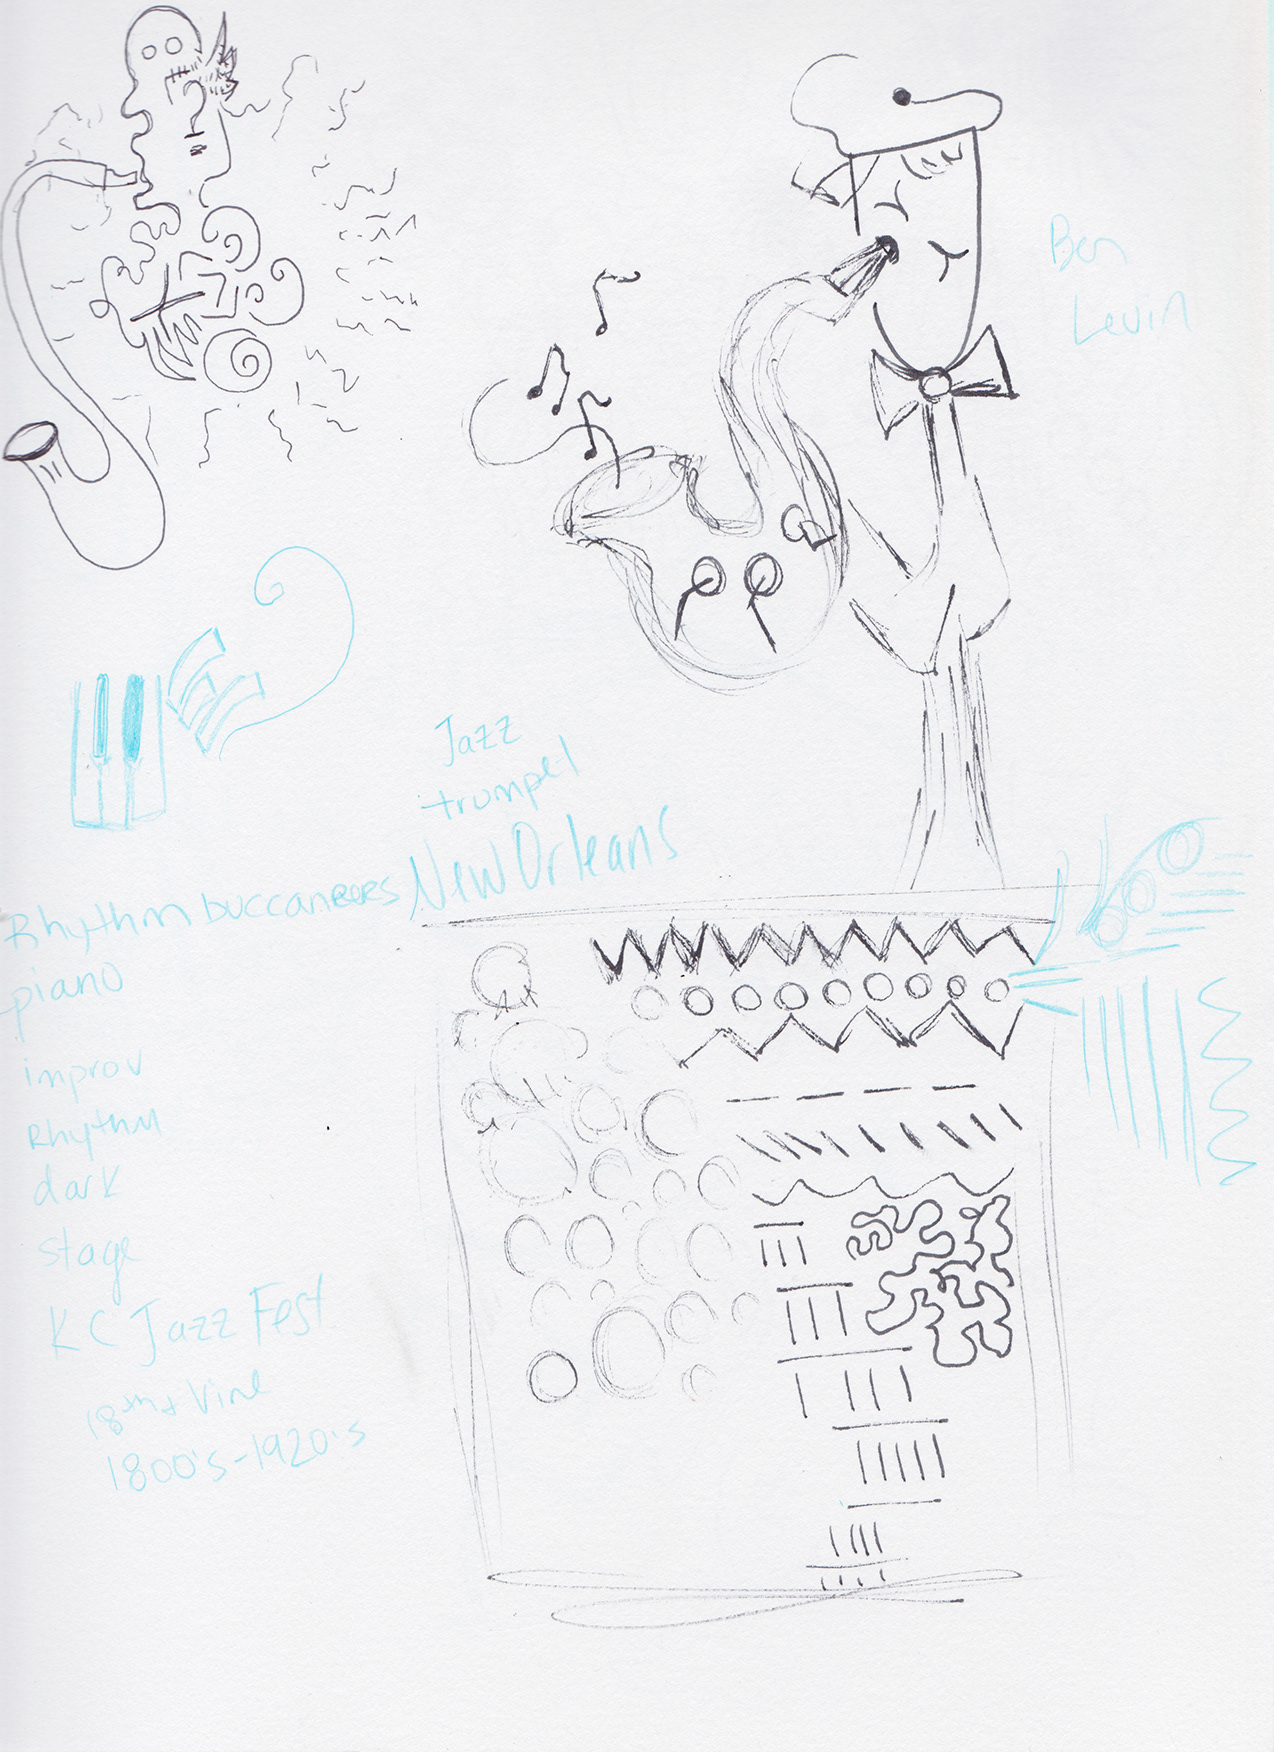 Ben
Levin
Jazz
trumpet
New Orleans
Rhythm buccaneers
piano
improv
Rhythm
dark
stage
KC Jazz Fest
18th & Vine
1800's-1920's